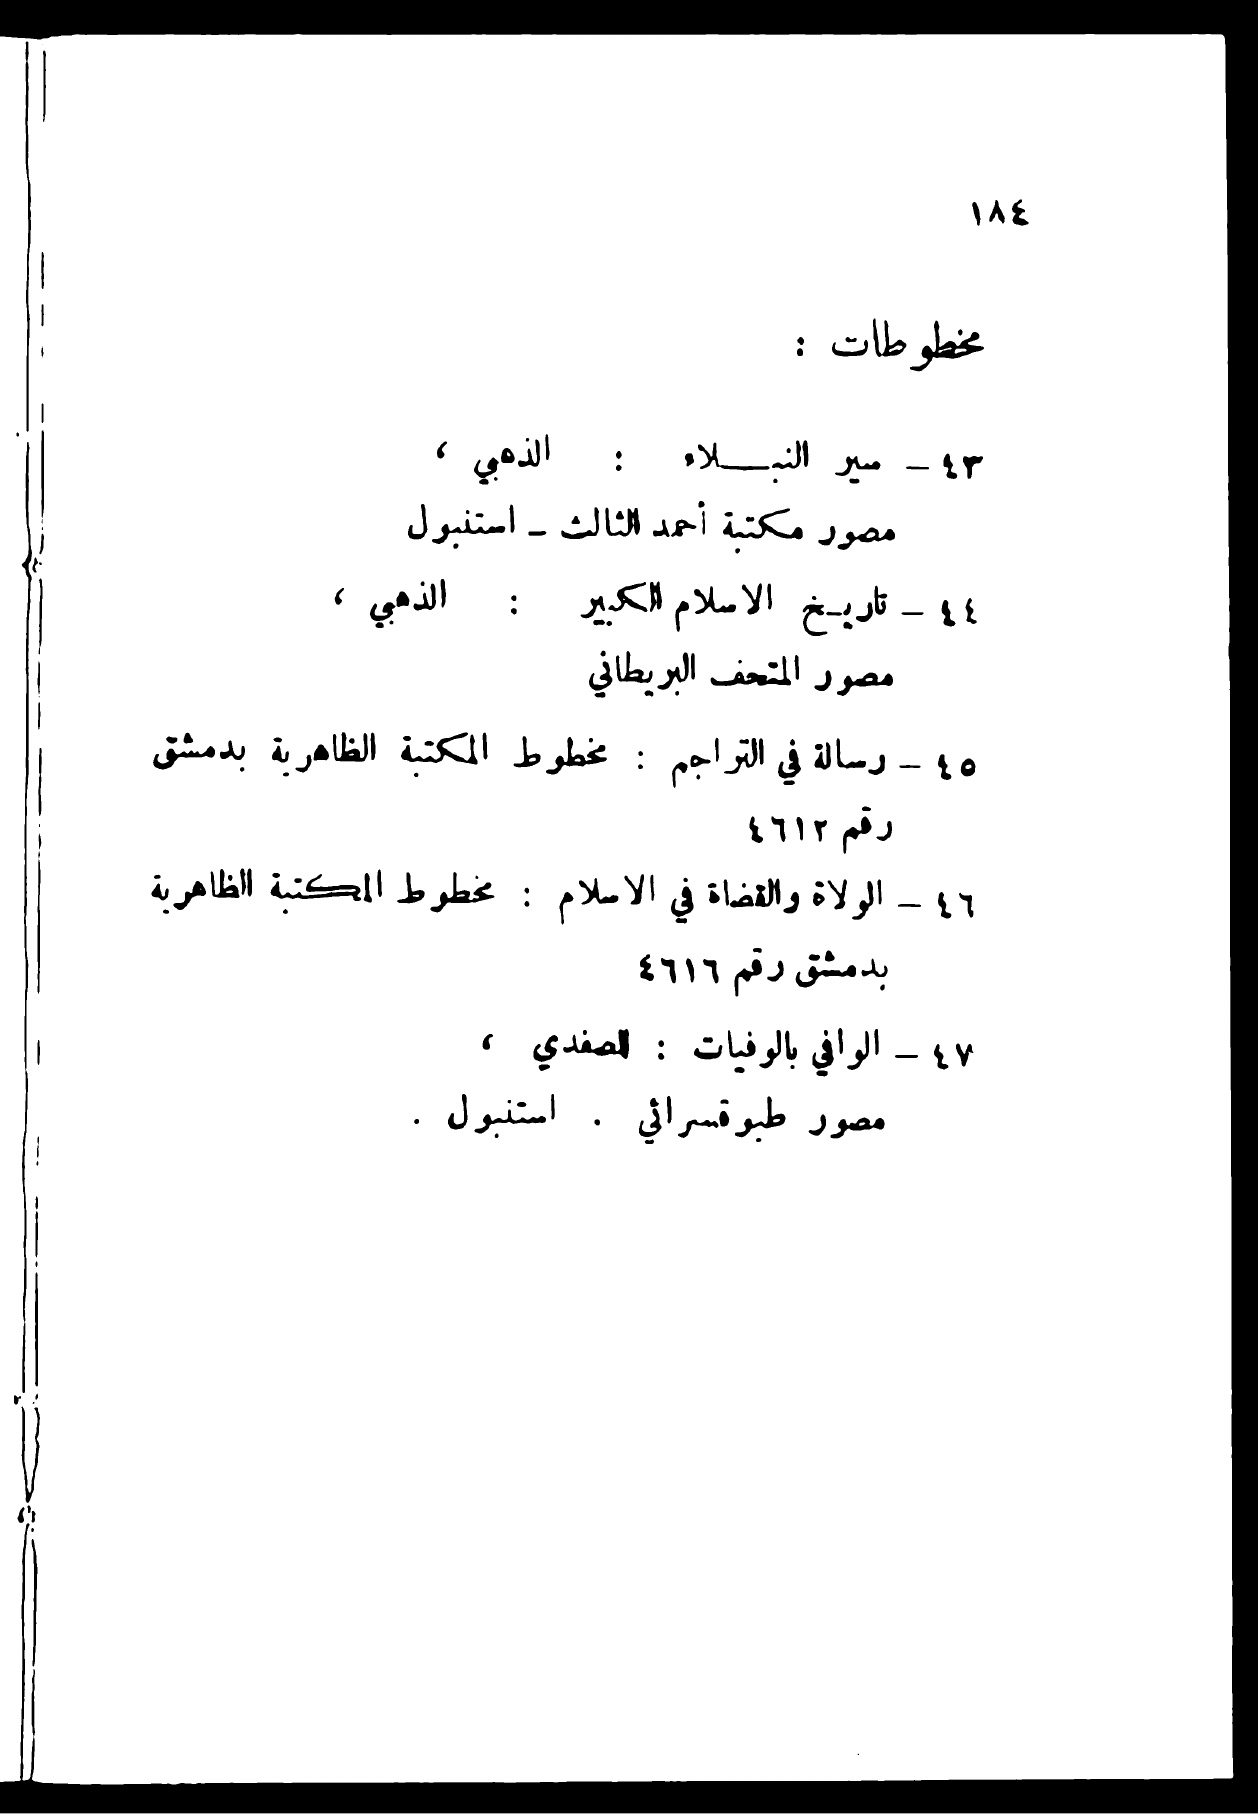 ١٨٤
مخطوطات :
٤٣ – سير النبـــلاء : الذهبي ،
مصور مكتبة أحمد الثالث – استنبول
٤٤ – تاريـخ الاسلام الكبير : الذهبي ،
مصور المتحف البريطاني
٤٥ – رسالة في التراجم : مخطوط المكتبة الظاهرية بدمشق
رقم ٤٦١٢
٤٦ – الولاة والقضاة في الاسلام : مخطوط المكتبة الظاهرية
بدمشق رقم ٤٦١٦
٤٧ – الوافي بالوفيات : الصفدي ،
مصور طبوقسرائي . استنبول .